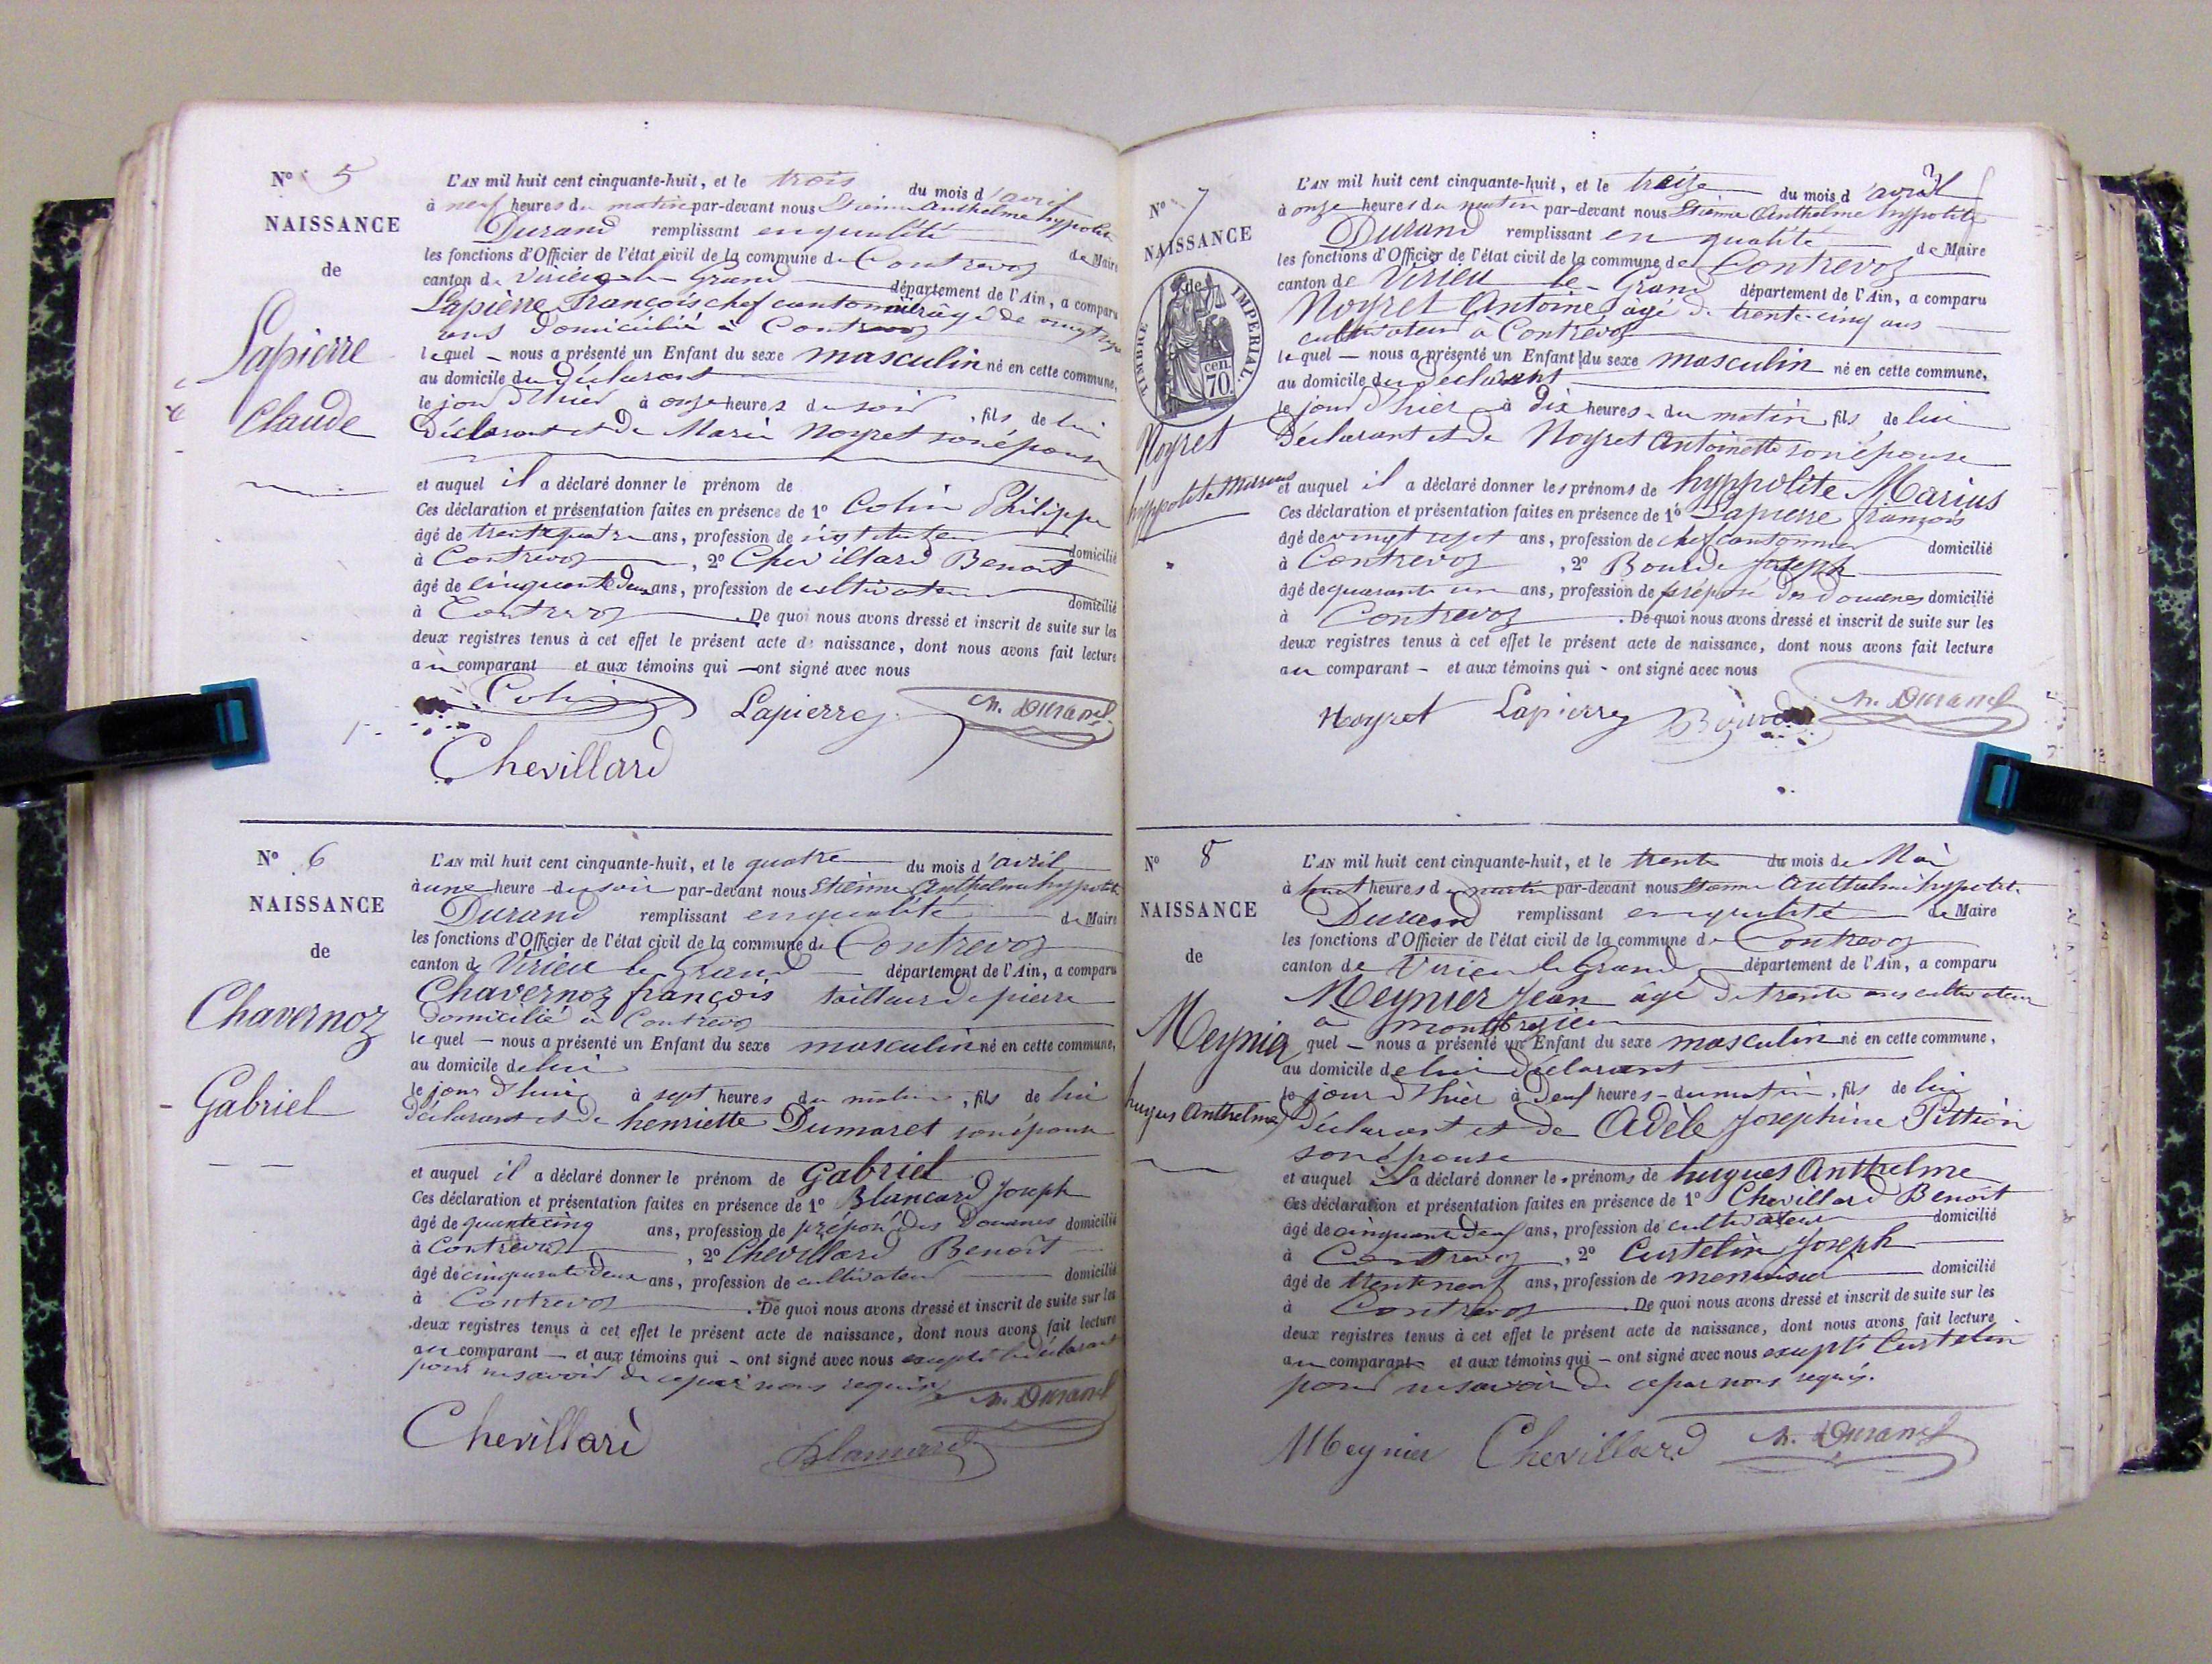 N° 5
NAISSANCE
de
Lapierre
Claude
L'AN mil huit cent cinquante-huit, et le trois du mois d'avril
à neuf heures du matin par-devant nous Etienne Anthelme hypolite
Durand remplissant en qualité de Maire
les fonctions d'Officier de l'état civil de la commune de Contrevoz
canton de Virieu le Grand département de l'Ain, a comparu
Lapierre François chef cantonnier âgé de vingt sept
ans domicilié à Contrevoz
lequel nous a présenté un Enfant du sexe masculin né en cette commune,
au domicile du déclarant
le jour d'hier à onze heures du soir, fils de lui
déclarant et de Marie Noyret son épouse
et auquel il a déclaré donner le prénom de
Ces déclaration et présentation faites en présence de 1° Colin Philippe
âgé de trente quatre ans, profession de instituteur domicilié
à Contrevoz, 2° Chevillard Benoit
âgé de cinquante deux ans, profession de cultivateur domicilié
à Contrevoz. De quoi nous avons dressé et inscrit de suite sur les
deux registres tenus à cet effet le présent acte de naissance, dont nous avons fait lecture
au comparant et aux témoins qui ont signé avec nous
Colin Lapierre Durand
Chevillard
N° 6
NAISSANCE
de
Chavernoz
Gabriel
L'AN mil huit cent cinquante-huit, et le quatre du mois d'avril
à une heure du soir par-devant nous Etienne Anthelme hypolite
Durand remplissant en qualité de Maire
les fonctions d'Officier de l'état civil de la commune de Contrevoz
canton de Virieu le Grand département de l'Ain, a comparu
Chavernoz françois tailleur de pierre
domicilié à Contrevoz
lequel nous a présenté un Enfant du sexe masculin né en cette commune,
au domicile de lui
le jour d'hui à sept heures du matin, fils de lui
déclarant et de henriette Dumaret son épouse
et auquel il a déclaré donner le prénom de Gabriel
Ces déclaration et présentation faites en présence de 1° Blancard Joseph
âgé de ans, profession de préposé des Douanes domicilié
à Contrevoz, 2° Chevillard Benoit
âgé de cinquante deux ans, profession de cultivateur domicilié
à Contrevoz. De quoi nous avons dressé et inscrit de suite sur les
deux registres tenus à cet effet le présent acte de naissance, dont nous avons fait lecture
au comparant et aux témoins qui ont signé avec nous excepté le déclarant
pour ne savoir de ce par nous requis
Durand
Chevillard Blancard
N° 7
NAISSANCE
de
TIMBRE IMPERIAL.
70 cen.
Noyret
hyppolite Marius
L'AN mil huit cent cinquante-huit, et le treize du mois d'avril
à onze heures du matin par-devant nous Etienne Anthelme hyppolite
Durand remplissant en qualité de Maire
les fonctions d'Officier de l'état civil de la commune de Contrevoz
canton de Virieu le Grand département de l'Ain, a comparu
Noyret Antoine âgé de trente-cinq ans
cultivateur à Contrevoz
lequel nous a présenté un Enfant du sexe masculin né en cette commune,
au domicile du déclarant
le jour d'hier à dix heures du matin, fils de lui
déclarant et de Noyret Antoinette son épouse
et auquel il a déclaré donner les prénoms de hyppolite Marius
Ces déclaration et présentation faites en présence de 1° Lapierre françois
âgé de vingt sept ans, profession de chef cantonnier domicilié
à Contrevoz, 2° Bourde Joseph
âgé de quarante un ans, profession de préposé des Douanes domicilié
à Contrevoz. De quoi nous avons dressé et inscrit de suite sur les
deux registres tenus à cet effet le présent acte de naissance, dont nous avons fait lecture
au comparant et aux témoins qui ont signé avec nous
Noyret Lapierre Bourde Durand
N° 8
NAISSANCE
de
Meynier
hugues Anthelme
L'AN mil huit cent cinquante-huit, et le trente du mois de Mai
à huit heures du matin par-devant nous Etienne Anthelme hypolite
Durand remplissant en qualité de Maire
les fonctions d'Officier de l'état civil de la commune de Contrevoz
canton de Virieu le Grand département de l'Ain, a comparu
Meynier Jean âgé de trente ans cultivateur
à
quel nous a présenté un Enfant du sexe masculin né en cette commune,
au domicile de lui déclarant
le jour d'hier à heures du matin, fils de lui
déclarant et de Adèle Josephine Pittion
son épouse
et auquel il a déclaré donner les prénoms de hugues Anthelme
Ces déclaration et présentation faites en présence de 1° Chevillard Benoit
âgé de cinquante deux ans, profession de cultivateur domicilié
à Contrevoz, 2° Curtelin Joseph
âgé de trente neuf ans, profession de menuisier domicilié
à Contrevoz. De quoi nous avons dressé et inscrit de suite sur les
deux registres tenus à cet effet le présent acte de naissance, dont nous avons fait lecture
au comparant et aux témoins qui ont signé avec nous excepté Curtelin
pour ne savoir de ce par nous requis.
Meynier Chevillard Durand